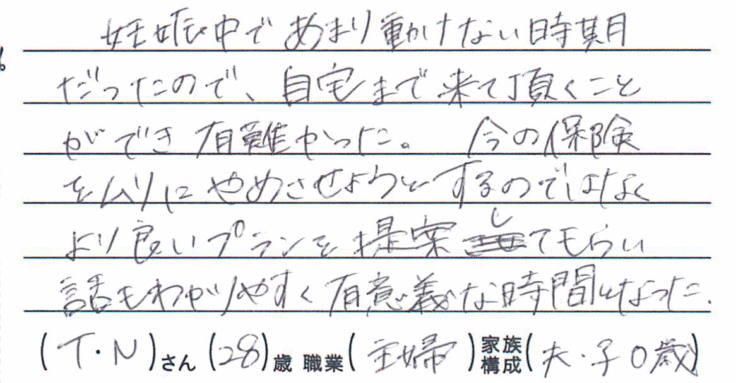 妊娠中であまり動けない時期
だったので、自宅まで来て頂くこと
ができ有難かった。 今の保険
をムリにやめさせようとするのではなく
より良いプランを提案してもらい
話もわかりやすく有意義な時間となった。
(T・N)さん (28)歳 職業(主婦)家族構成(夫・子0歳)